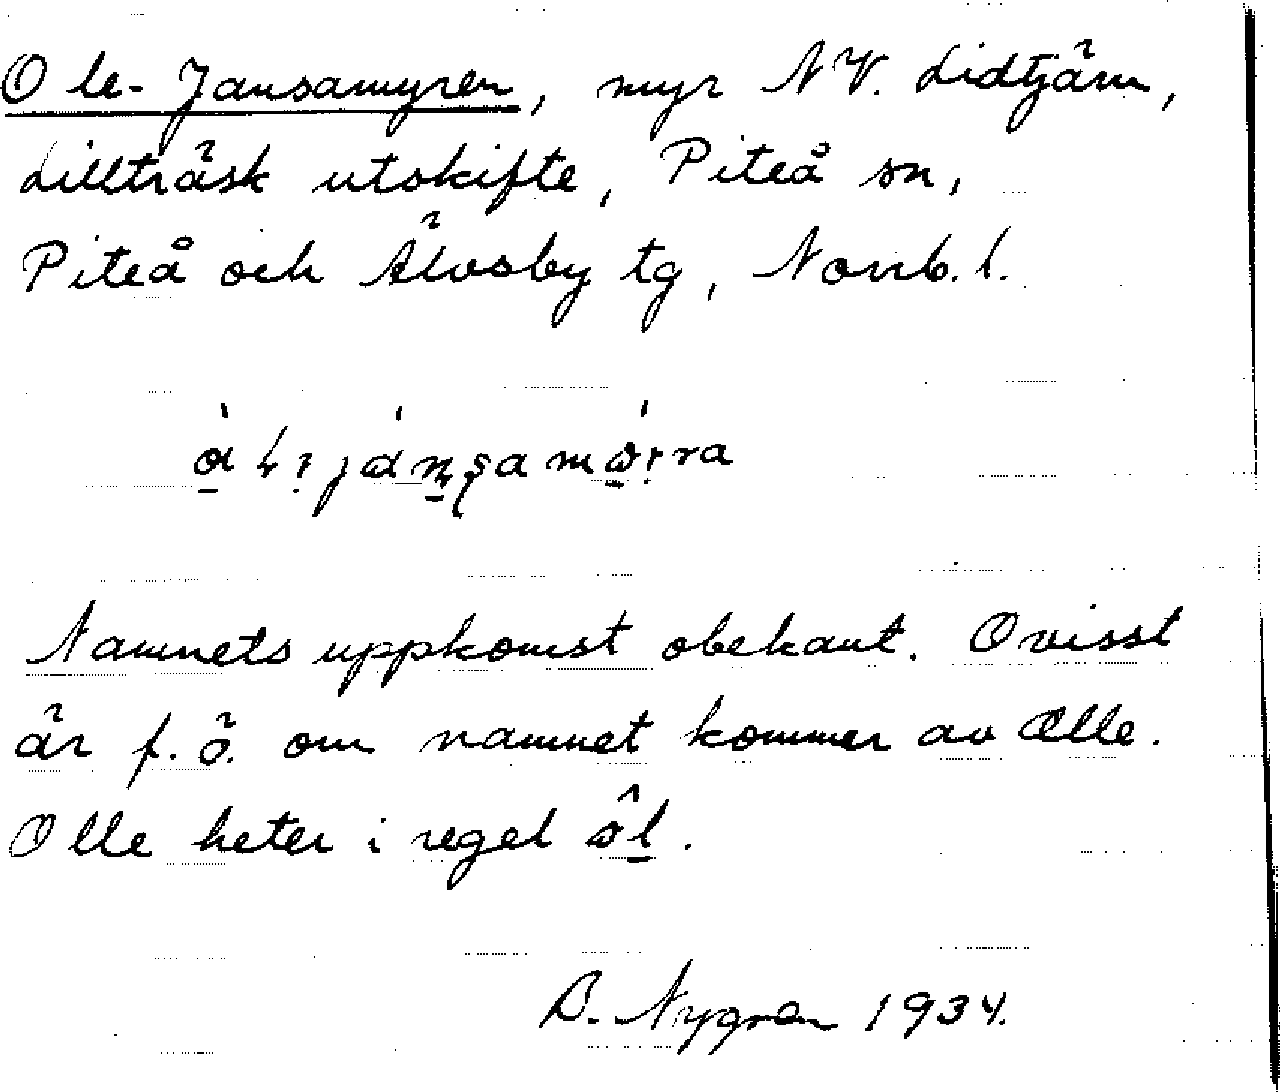 Ole-Jansamyren, myr NV. Lidtjärn,
Lillträsk utskifte, Piteå sn,
Piteå och Älvsby tg, Norrb. l.
Namnets uppkomst obekant. Ovisst
är f. ö. om namnet kommer av Olle.
Olle heter i regel ôl.
B. Nygren 1934.